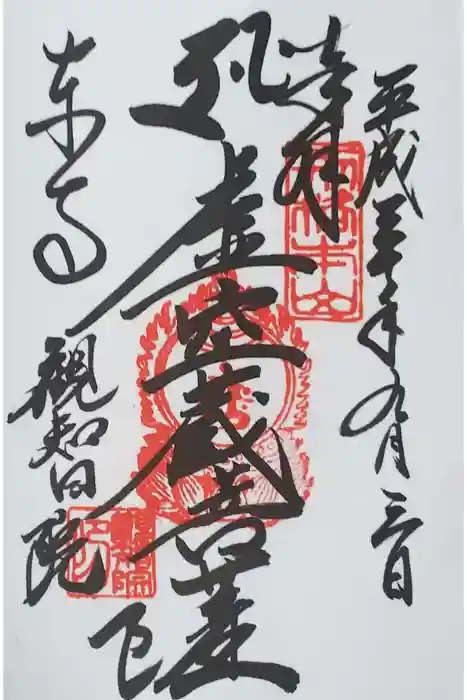 平成三十年九月三日
奉拝
虚空蔵菩薩
東寺
観智院